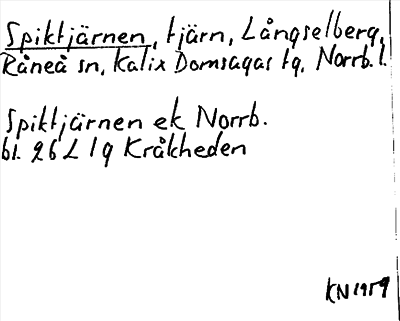 Spiktjärnen, tjärn, Långselberg,
Råneå sn, Kalix Domsagas tg, Norrb. l.
Spiktjärnen ek Norrb.
bl. 26 L 1 g Kråkheden
KN 1959